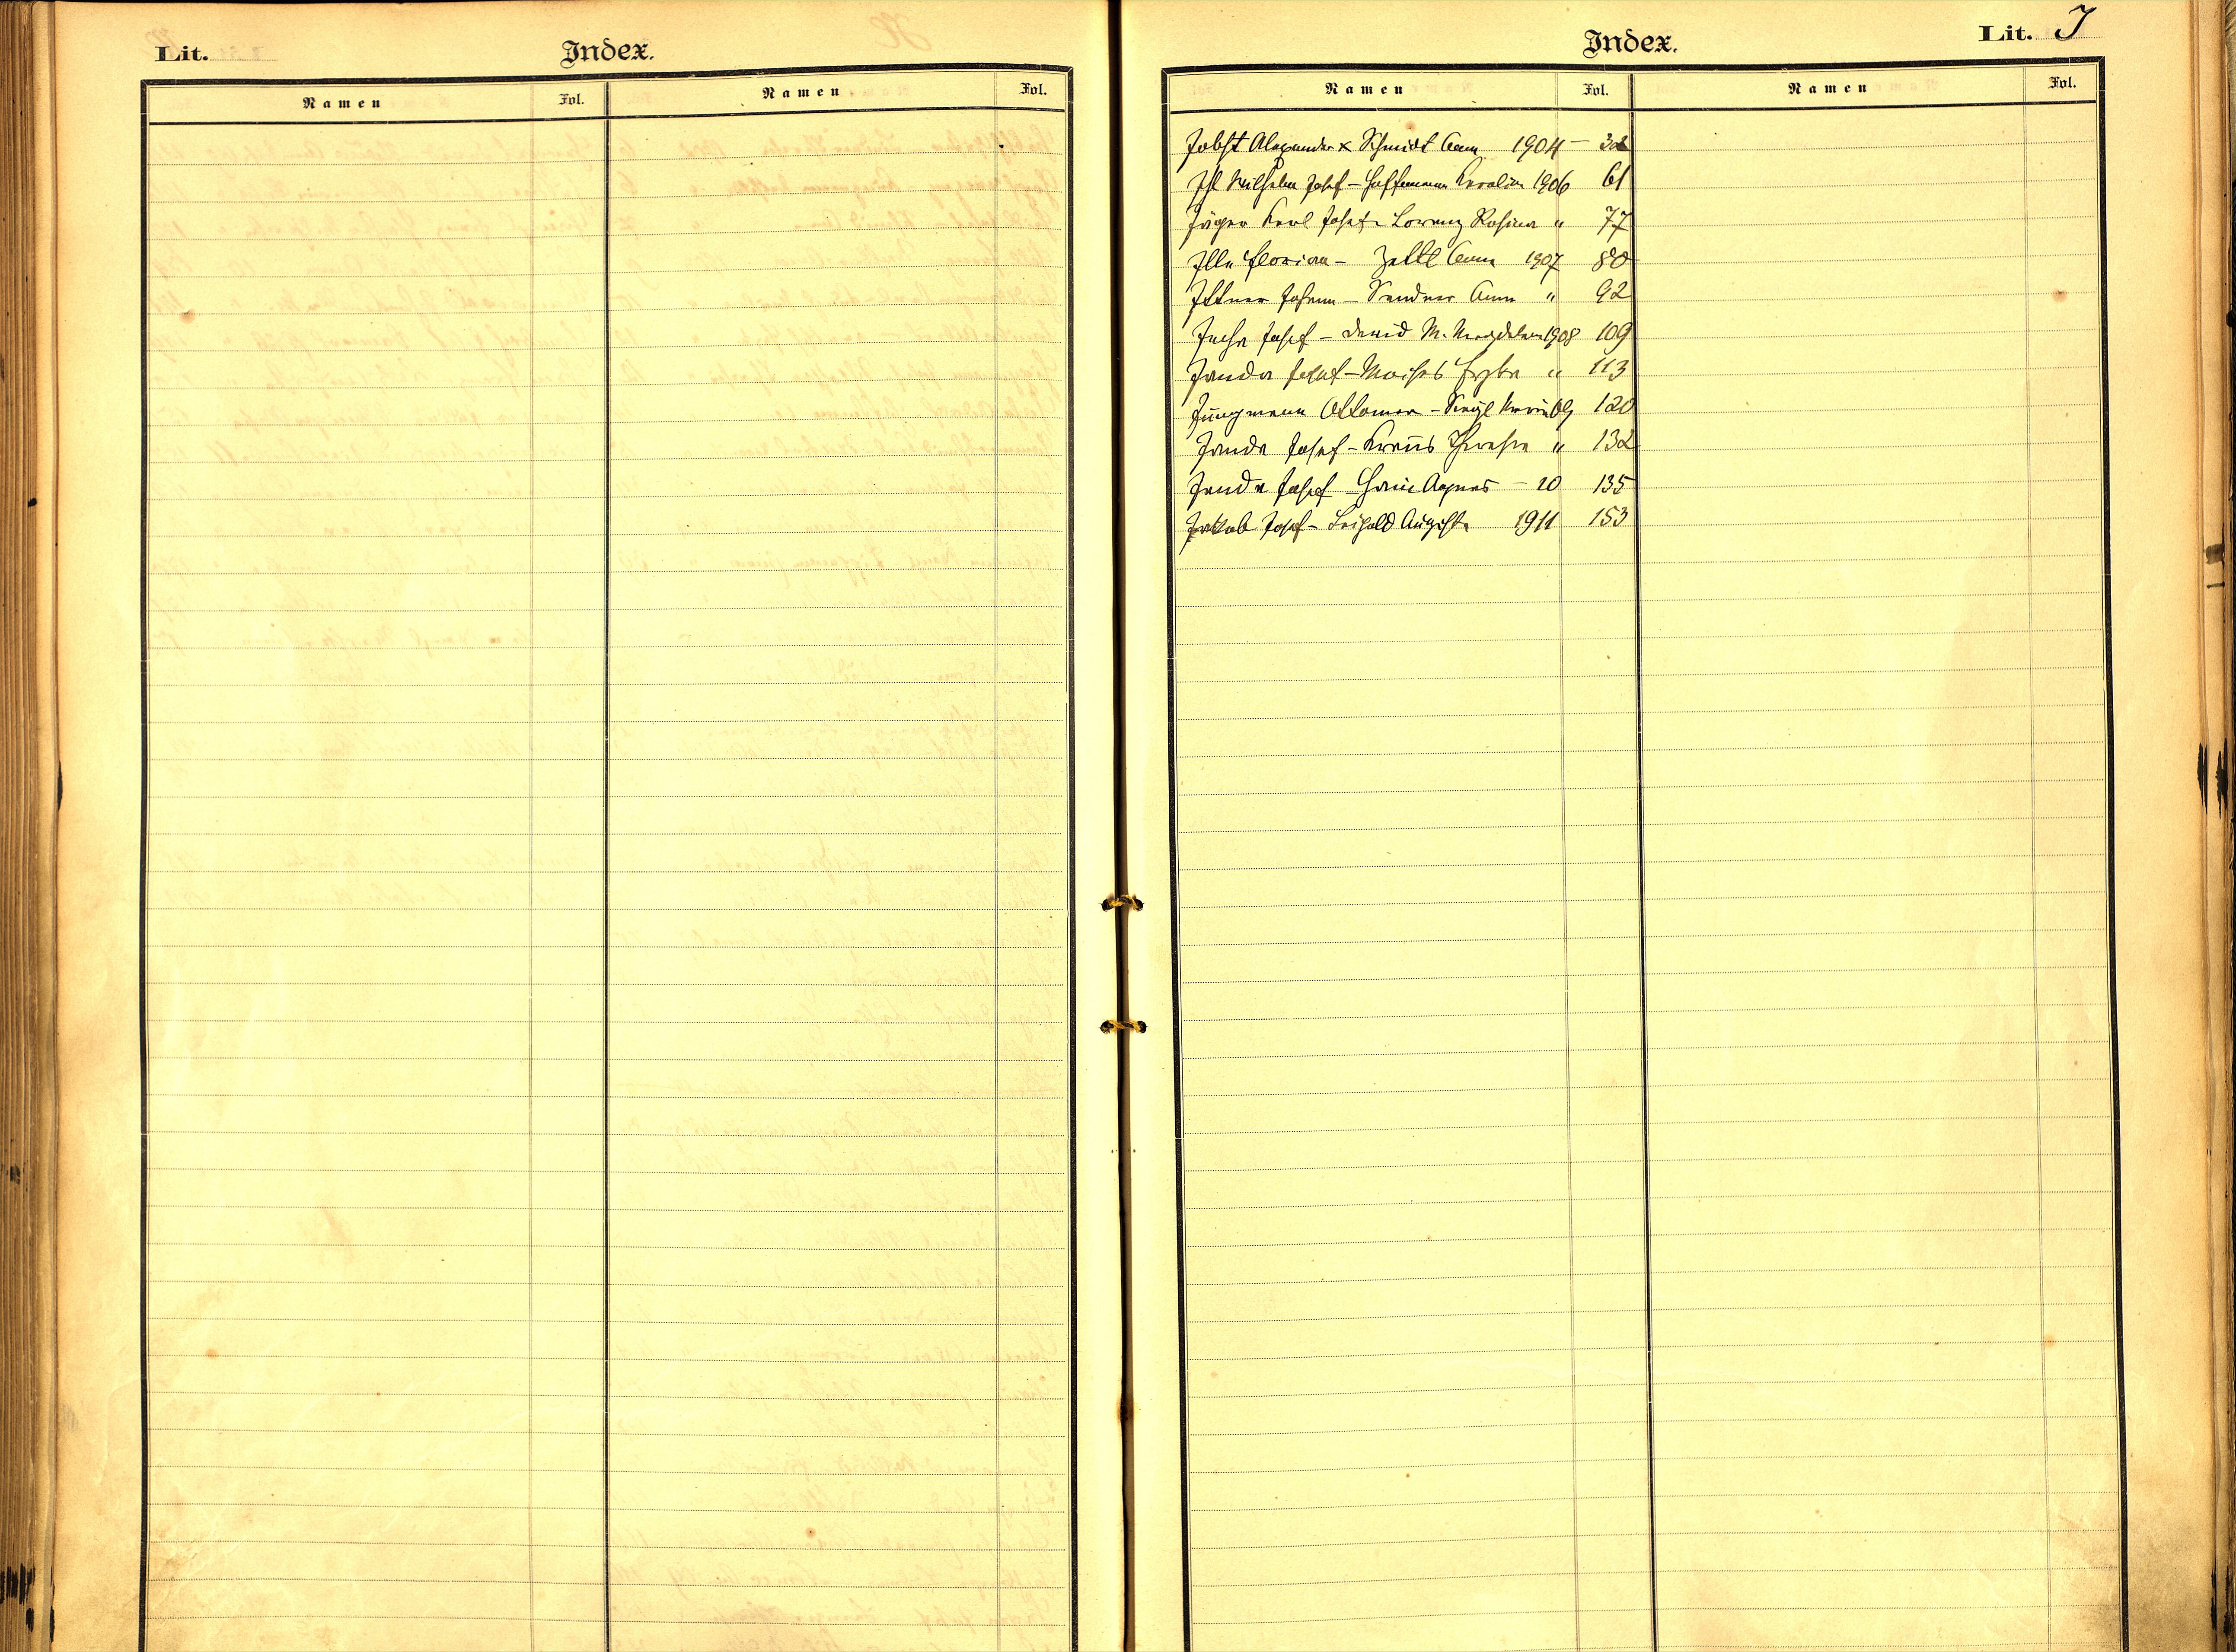 Lit.
Index.
Namen Fol. Namen Fol.
Index.
Lit. J
Namen Fol. Namen Fol.
Jobst Alexander x Schmidt Anna 1904 — 32
Ihl Wilhelm Josef — Hoffmann Karolina 1906 61
Jäger Karl Josef — Lorenz Rosina " 77
Ille Florian — Zettl Anna 1907 80
Ittner Johann — Sandner Anna " 92
Josef — David M. Magdalena 1908 109
Janda Josef — " 113
Jungmann Ottomar — 09 120
Janda Josef — Kraus Theresia " 132
Janda Josef — Agnes — 10 135
Jakob Josef — Leipold Augusta 1911 153